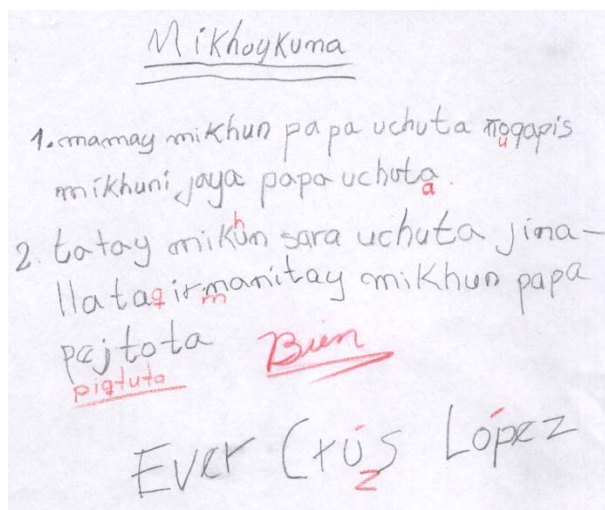 Mikhuykuma
1. mamay mikhun papa uchuta ñoqapis
u
mikhuni jaya papa uchuta.
a
h
2. tatay mikun sara uchuta jina-
llataq irmanitay mikhun papa
m
pejtota Bien
piqtuta
Ever Crús López
z